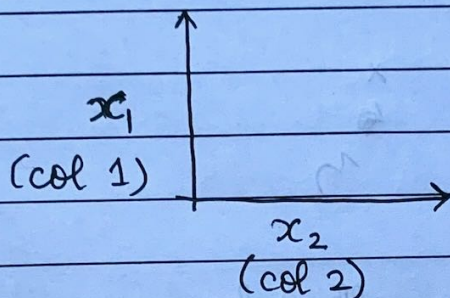 x₁
(col 1)
x₂
(col 2)